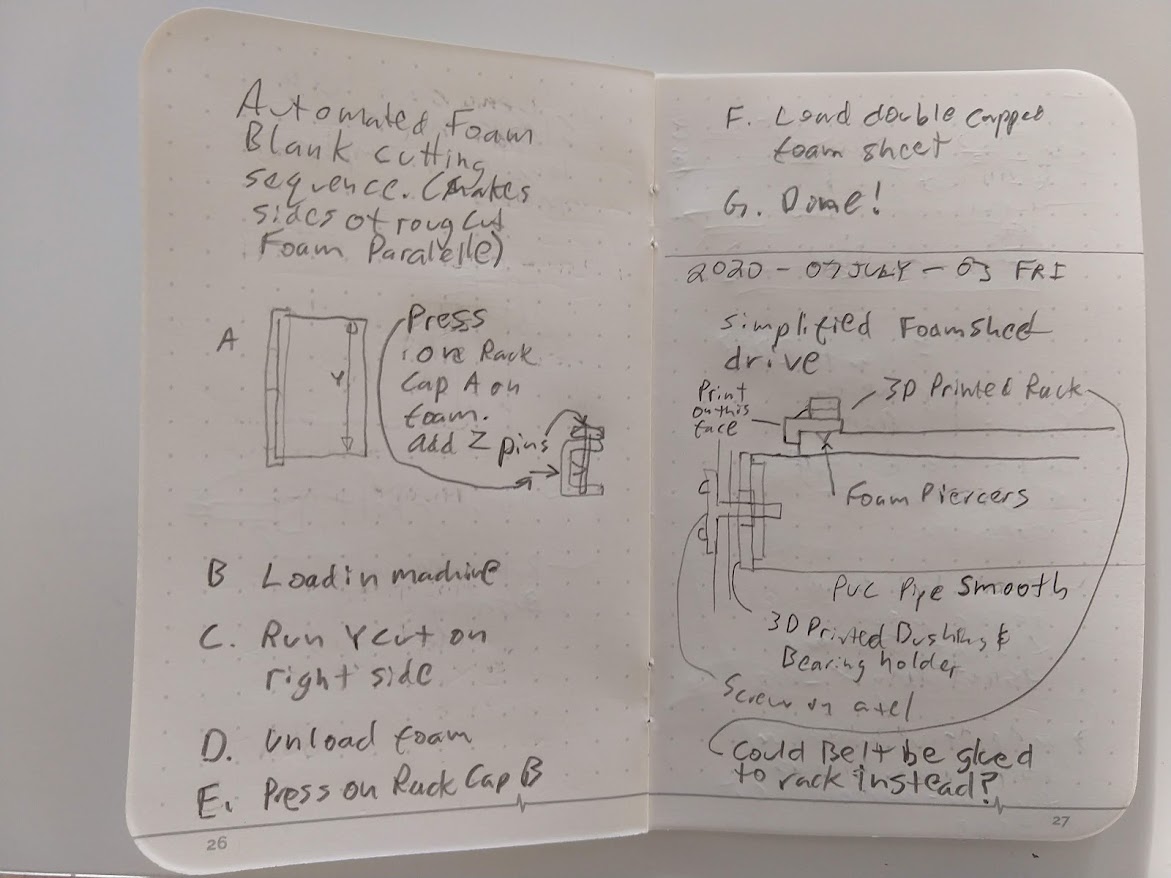 Automated Foam
Blank cutting
sequence. (Makes
sides of roug cut
Foam Paralelle)
A
Y
Press
one Rack
Cap A on
foam.
add Z pins
B Load in machine
C. Run Y cut on
right side
D. Unload foam
E. Press on Rack Cap B
26
F. Load double capped
foam sheet
G. Done!
2020-07JULY-03 FRI
simplified Foam shed
drive
Print
on this
face
3D Printed Rack
Foam Piercers
PVC Pipe Smooth
3D Printed Bushing &
Bearing holder
Screw on axel
Could Belt be glued
to rack instead?
27